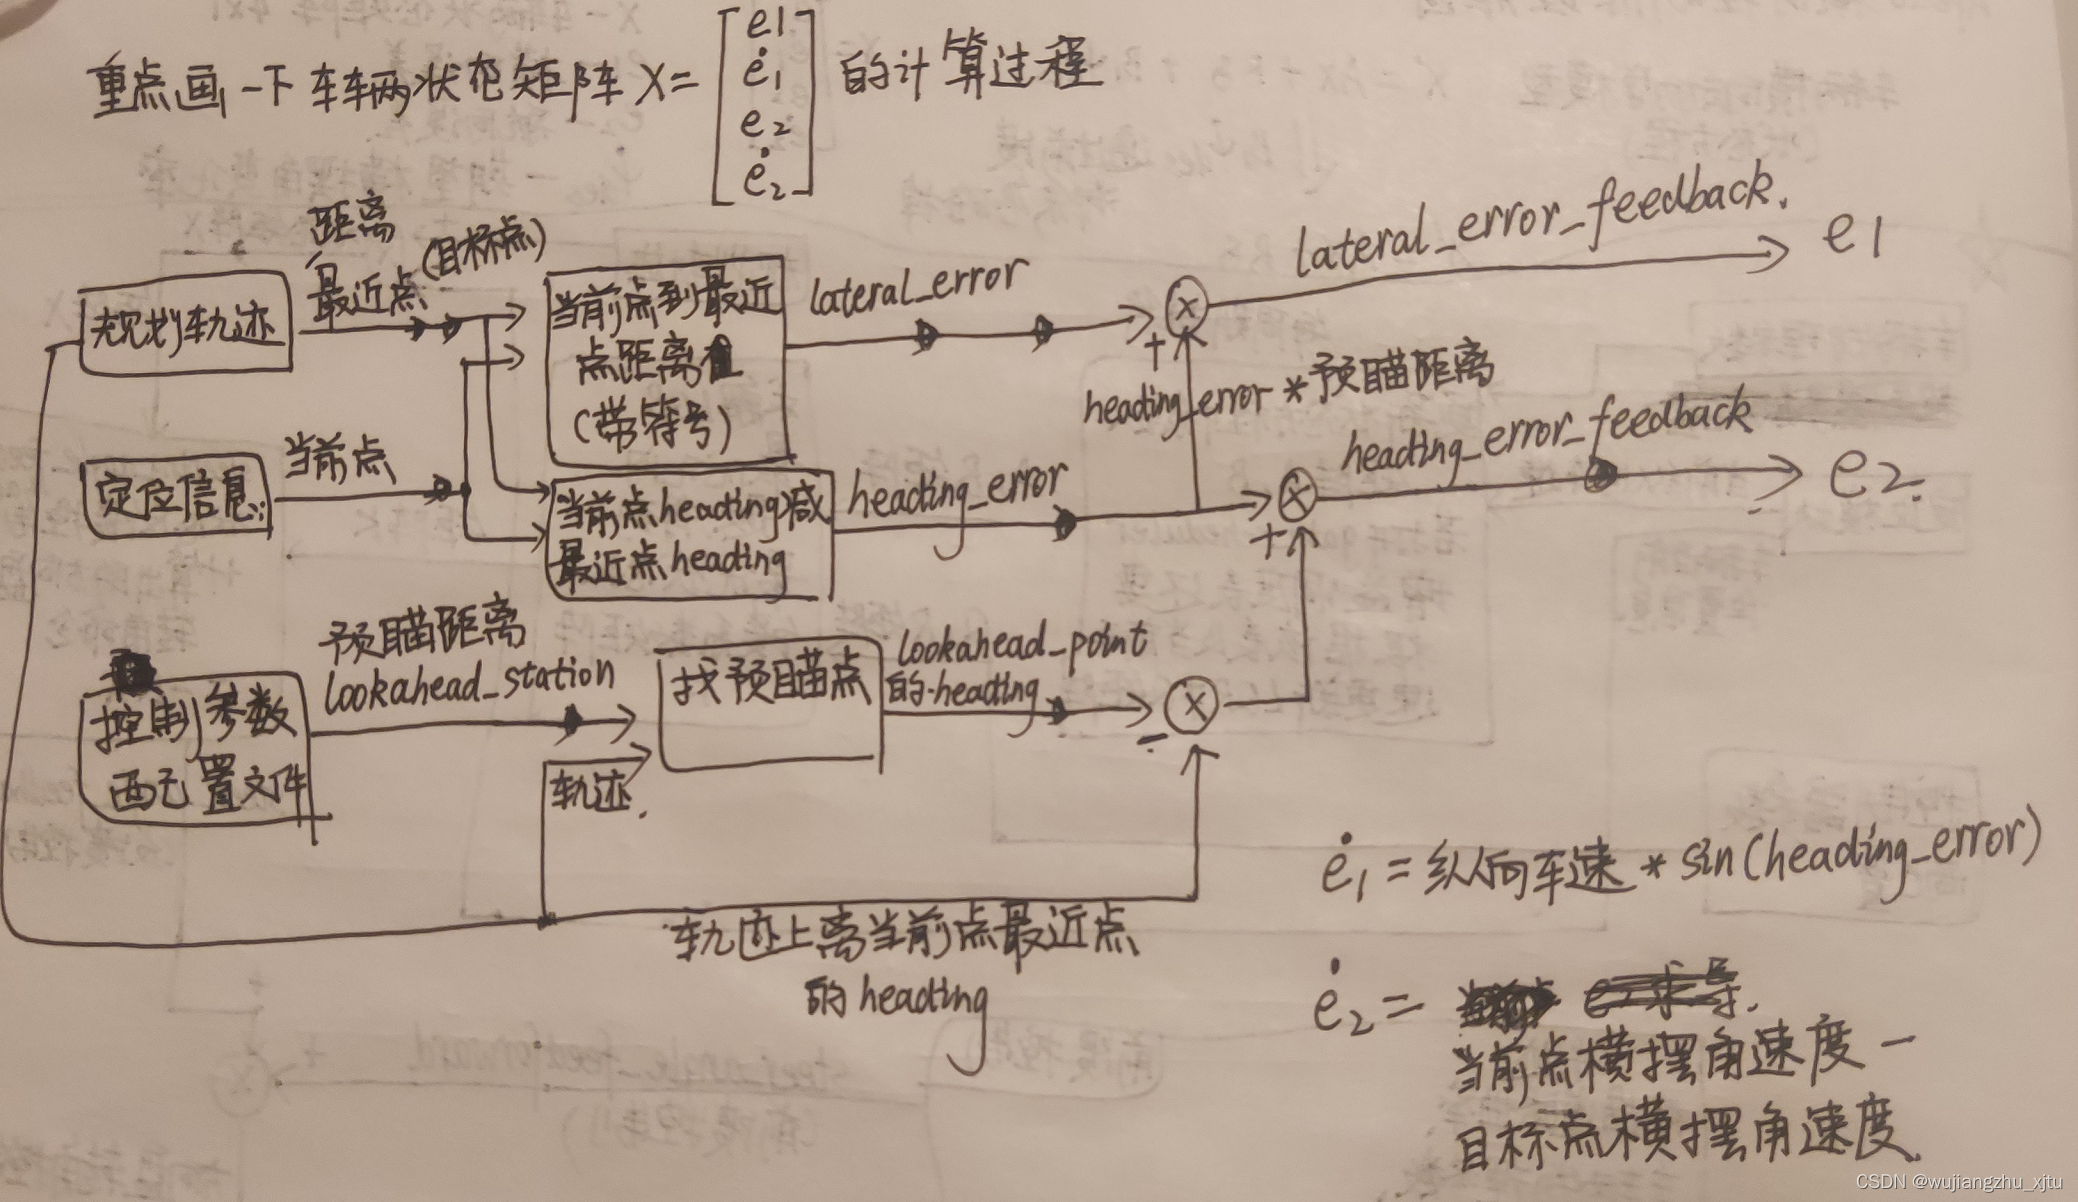 重点画一下车辆状态矩阵 X = [e1 ė1 e2 ė2] 的计算过程
距离
最近点 (目标点)
规划轨迹
当前点到最近
点距离值
(带符号)
lateral_error
+
lateral_error_feedback.
e1
heading_error * 预瞄距离
定位信息
当前点
当前点heading减
最近点heading
heading_error
+
heading_error_feedback
e2.
预瞄距离
lookahead_station
控制参数
配置文件
找预瞄点
轨迹.
lookahead_point
的heading
-
轨迹上离当前点最近点
的heading
ė1 = 纵向车速 * sin(heading_error)
ė2 =
当前点横摆角速度 -
目标点横摆角速度.
CSDN @wujiangzhu_xjtu